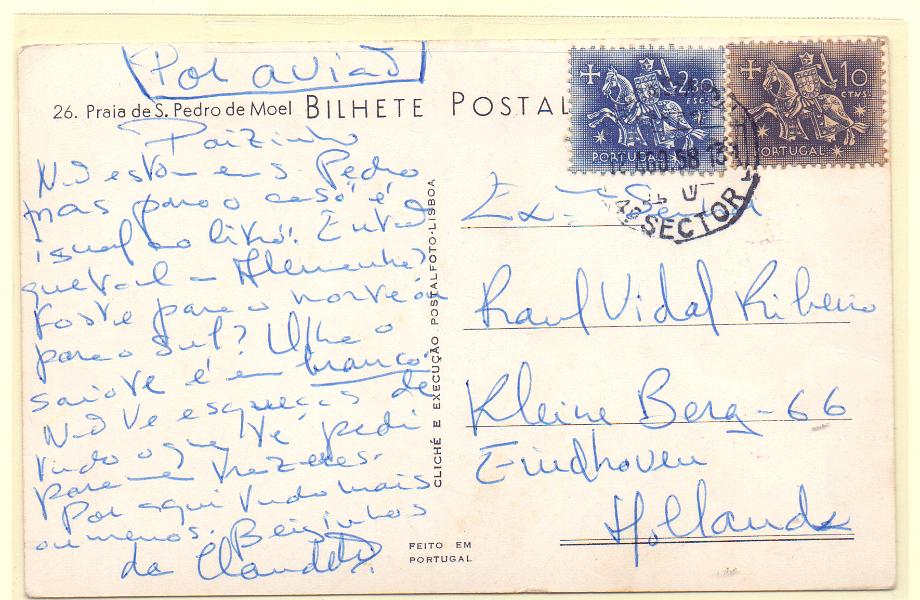 Por avião
26. Praia de S. Pedro de Moel BILHETE POSTAL
Paizinho
Não estou em S. Pedro
mas para o caso é
igual ao litro! Então
que tal a Alemanha?
Foste para o norte ou
para o Sul? Olhe o
saiote é em branco.
Não te esqueças de
tudo o que te pedi
para me trazeres.
Por aqui tudo mais
ou menos. Beijinhos
da
CLICHÉ E EXECUÇÃO · POSTALFOTO-LISBOA
FEITO EM
PORTUGAL
2$30
ESC.
PORTUGAL
10
CTVS.
PORTUGAL
58
4º SECTOR
Raul Vidal Ribeiro
Kleine Berg-66
Eindhoven
Holland